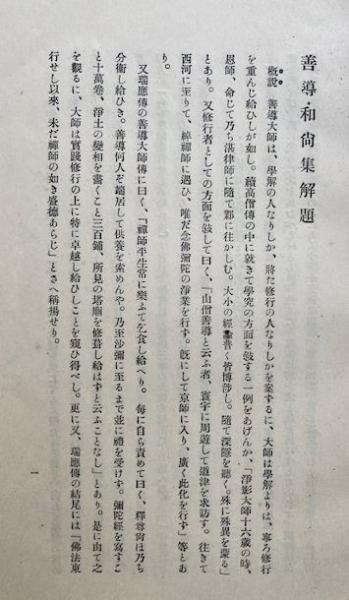 善導和尙集解題
概說　善導大師は、學解の人なりしか、將た修行の人なりしかを案ずるに、大師は學解よりは、寧ろ修行
を重んじ給ひしが如し。續高僧傳の中に就きて學究の方面を敍する一例をあげんか、「淨影大師十六歲の時、
恩師、命じて乃ち湛律師に隨て鄴に往かしむ。大小の經論普く皆博涉し。隨て深隱を聽く。殊に殊異を蒙る」
とあり。又修行者としての方面を敍して曰く、「山僧善導と云ふ者、寰宇に周遊して道津を求訪す。往きて
西河に至りて、綽禪師に遇ひ、唯だ念佛彌陀の淨業を行す。既にして京師に入り、廣く此化を行ず」等とあ
り。
又瑞應傳の善導大師傳に曰く、「禪師平生常に樂ふて乞食し給へり。每に自ら責めて曰く、釋尊尙ほ乃ち
分衞し給ひき。善導何人ぞ端居して供養を索めんや。乃至沙彌に至るまで並に禮を受けず。彌陀經を寫すこ
と十萬卷、淨土の變相を書くこと三百鋪、所見の塔廟を修葺し給はずと云ふことなし」とあり。是に由て之
を觀るに、大師は實踐修行の上に特に卓越し給ひしことを窺ひ得べし。更に又、瑞應傳の結尾には「佛法東
行せし以來、未だ禪師の如き盛德あらじ」とさへ稱揚せり。
一